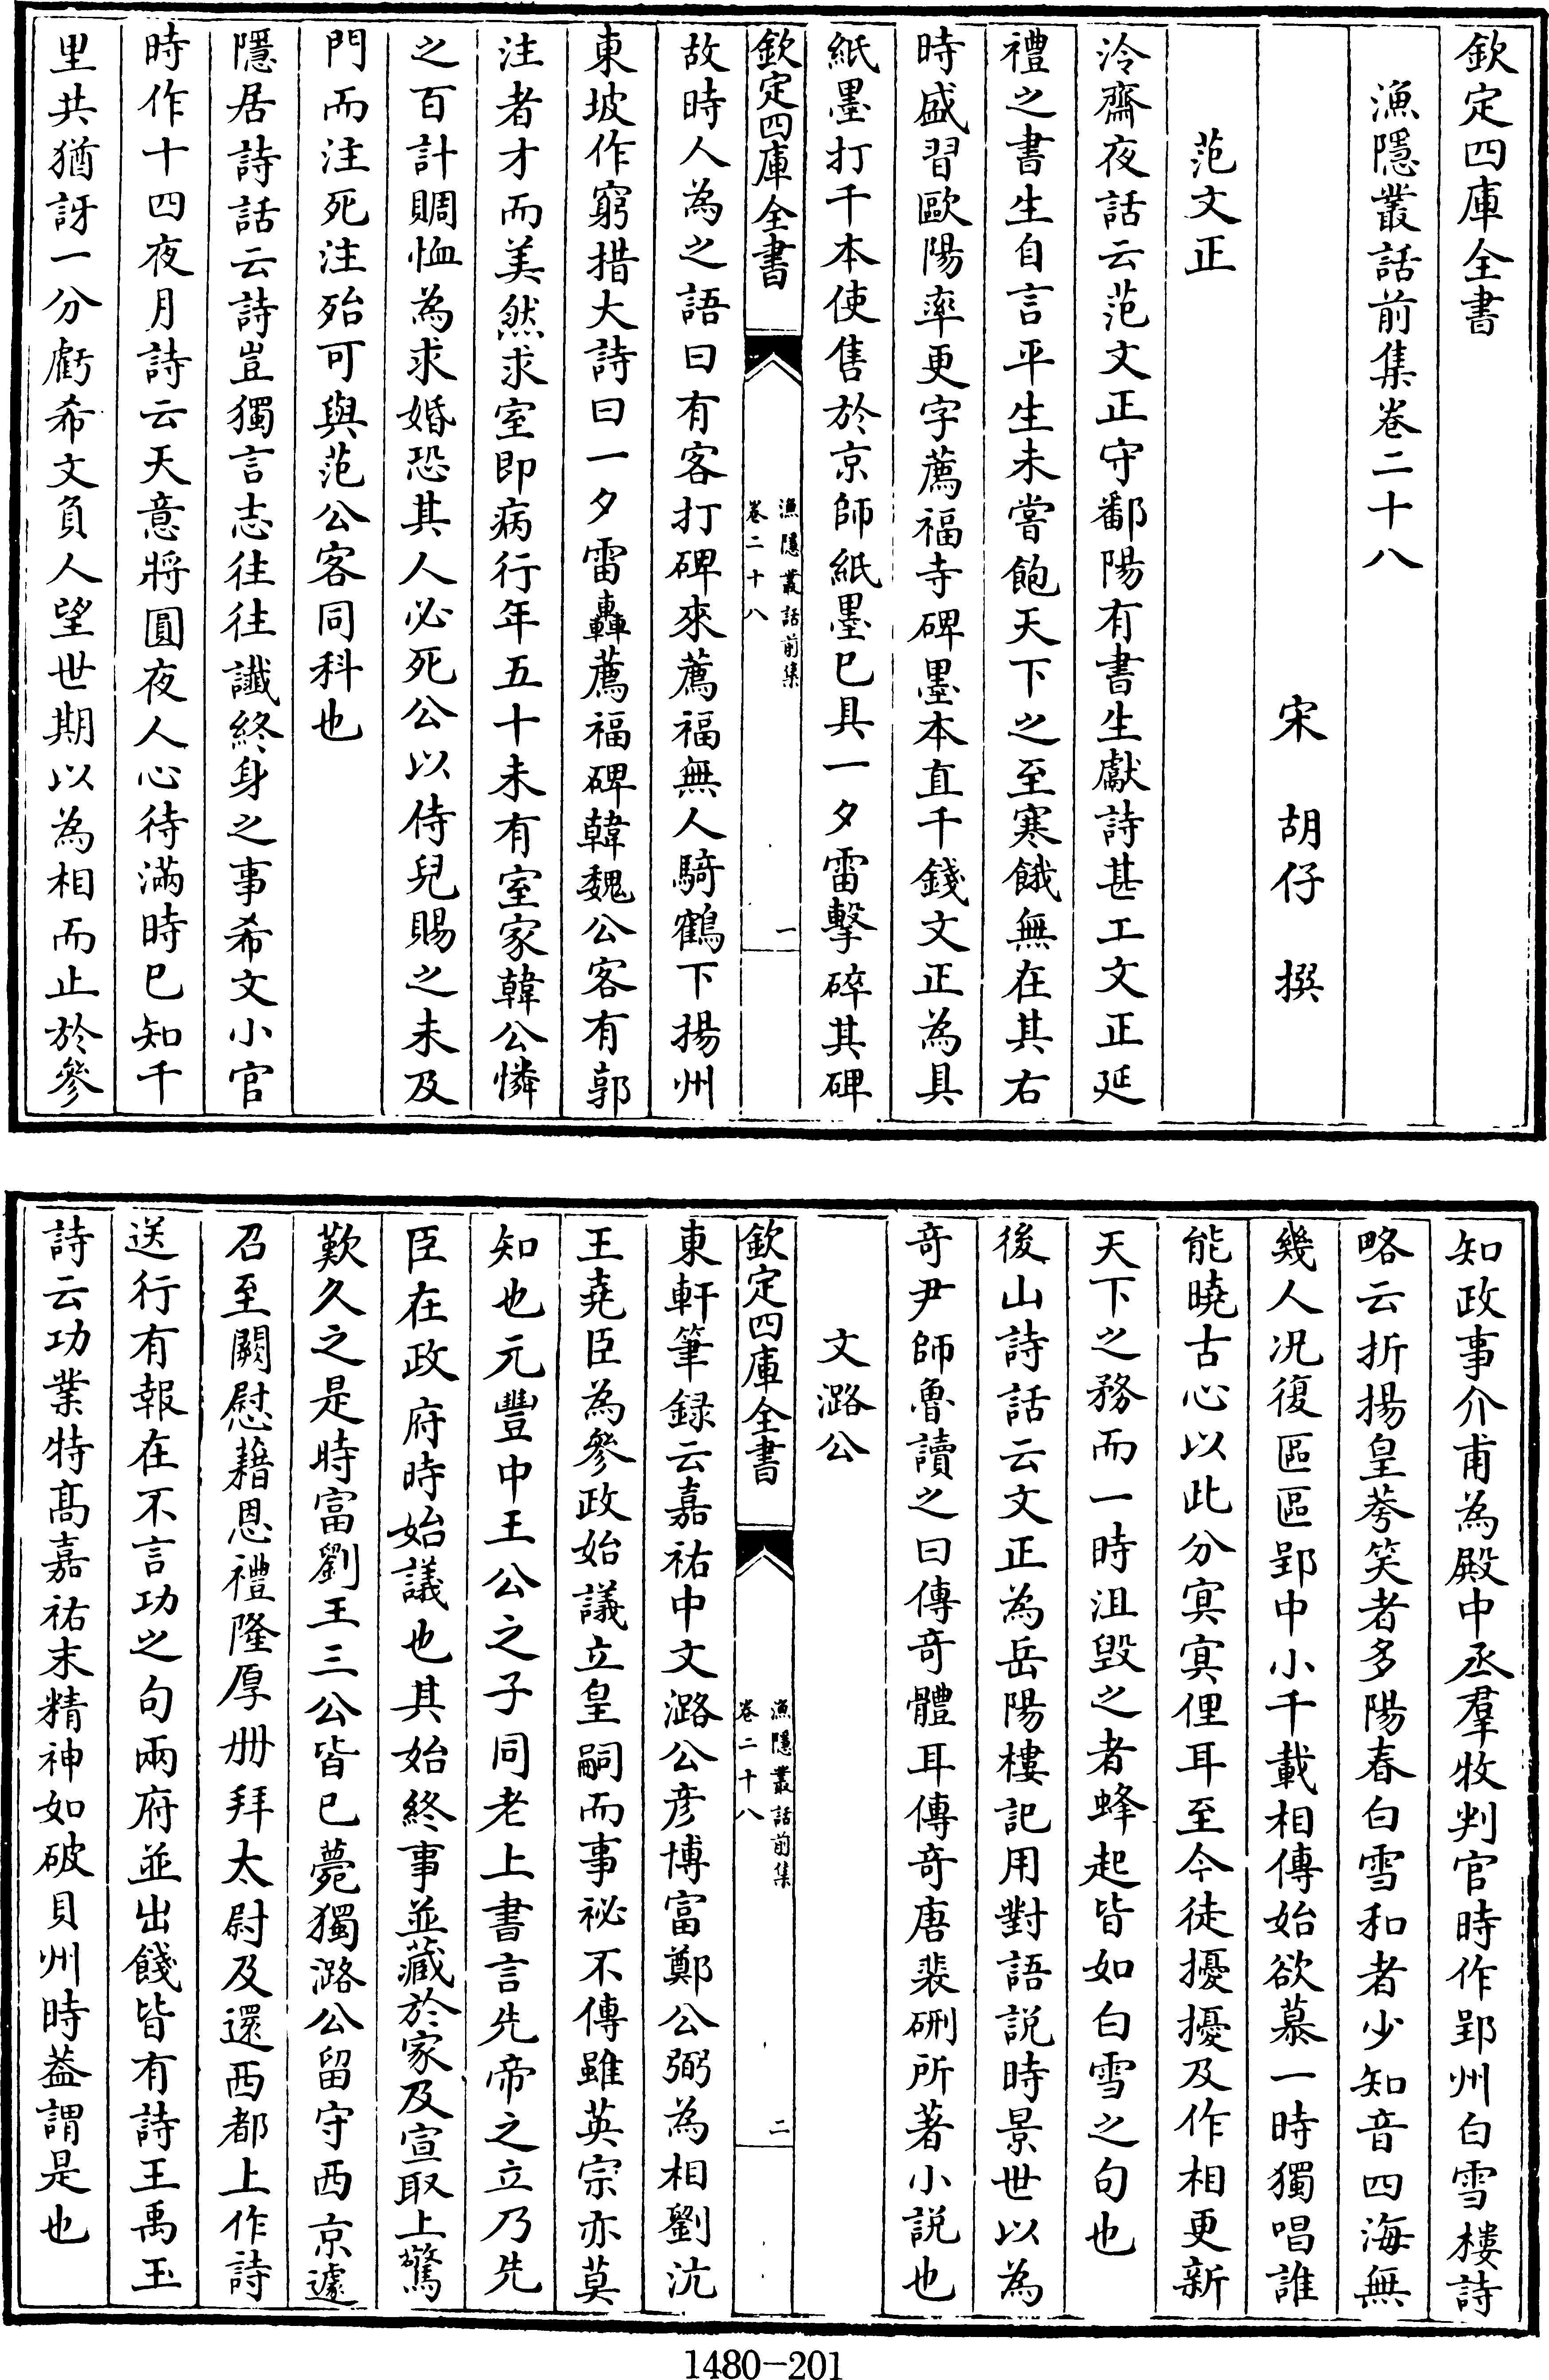 欽定四庫全書
漁隱叢話前集卷二十八
宋 胡仔 撰
范文正
泠齋夜話云范文正守鄱陽有書生獻詩甚工文正延
禮之書生自言平生未嘗飽天下之至寒餓無在其右
時盛習歐陽率更字薦福寺碑墨本直千錢文正為具
紙墨打千本使售於京師紙墨巳具一夕雷擊碎其碑
欽定四庫全書
漁隱叢話前集
卷二十八
一
故時人為之語曰有客打碑來薦福無人騎鶴下揚州
東坡作窮措大詩曰一夕雷轟薦福碑韓魏公客有郭
注者才而美然求室即病行年五十未有室家韓公憐
之百計賙恤為求婚恐其人必死公以侍兒賜之未及
門而注死注殆可與范公客同科也
隱居詩話云詩豈獨言志往往讖終身之事希文小官
時作十四夜月詩云天意將圓夜人心待滿時巳知千
里共猶訝一分虧希文負人望世期以為相而止於參
知政事介甫為殿中丞羣牧判官時作郢州白雪樓詩
略云折揚皇荂笑者多陽春白雪和者少知音四海無
幾人况復區區郢中小千載相傳始欲慕一時獨唱誰
能曉古心以此分冥冥俚耳至今徒擾擾及作相更新
天下之務而一時沮毀之者蜂起皆如白雪之句也
後山詩話云文正為岳陽樓記用對語説時景世以為
奇尹師魯讀之曰傳奇體耳傳奇唐裴硎所著小説也
文潞公
欽定四庫全書
漁隱叢話前集
卷二十八
二
東軒筆録云嘉祐中文潞公彦博富鄭公弼為相劉沆
王堯臣為參政始議立皇嗣而事祕不傳雖英宗亦莫
知也元豐中王公之子同老上書言先帝之立乃先
臣在政府時始議也其始終事並藏於家及宣取上驚
歎久之是時富劉王三公皆巳薨獨潞公留守西京遽
召至闕慰藉恩禮隆厚册拜太尉及還西都上作詩
送行有報在不言功之句兩府並出餞皆有詩王禹玉
詩云功業特髙嘉祐末精神如破貝州時葢謂是也
1480-201